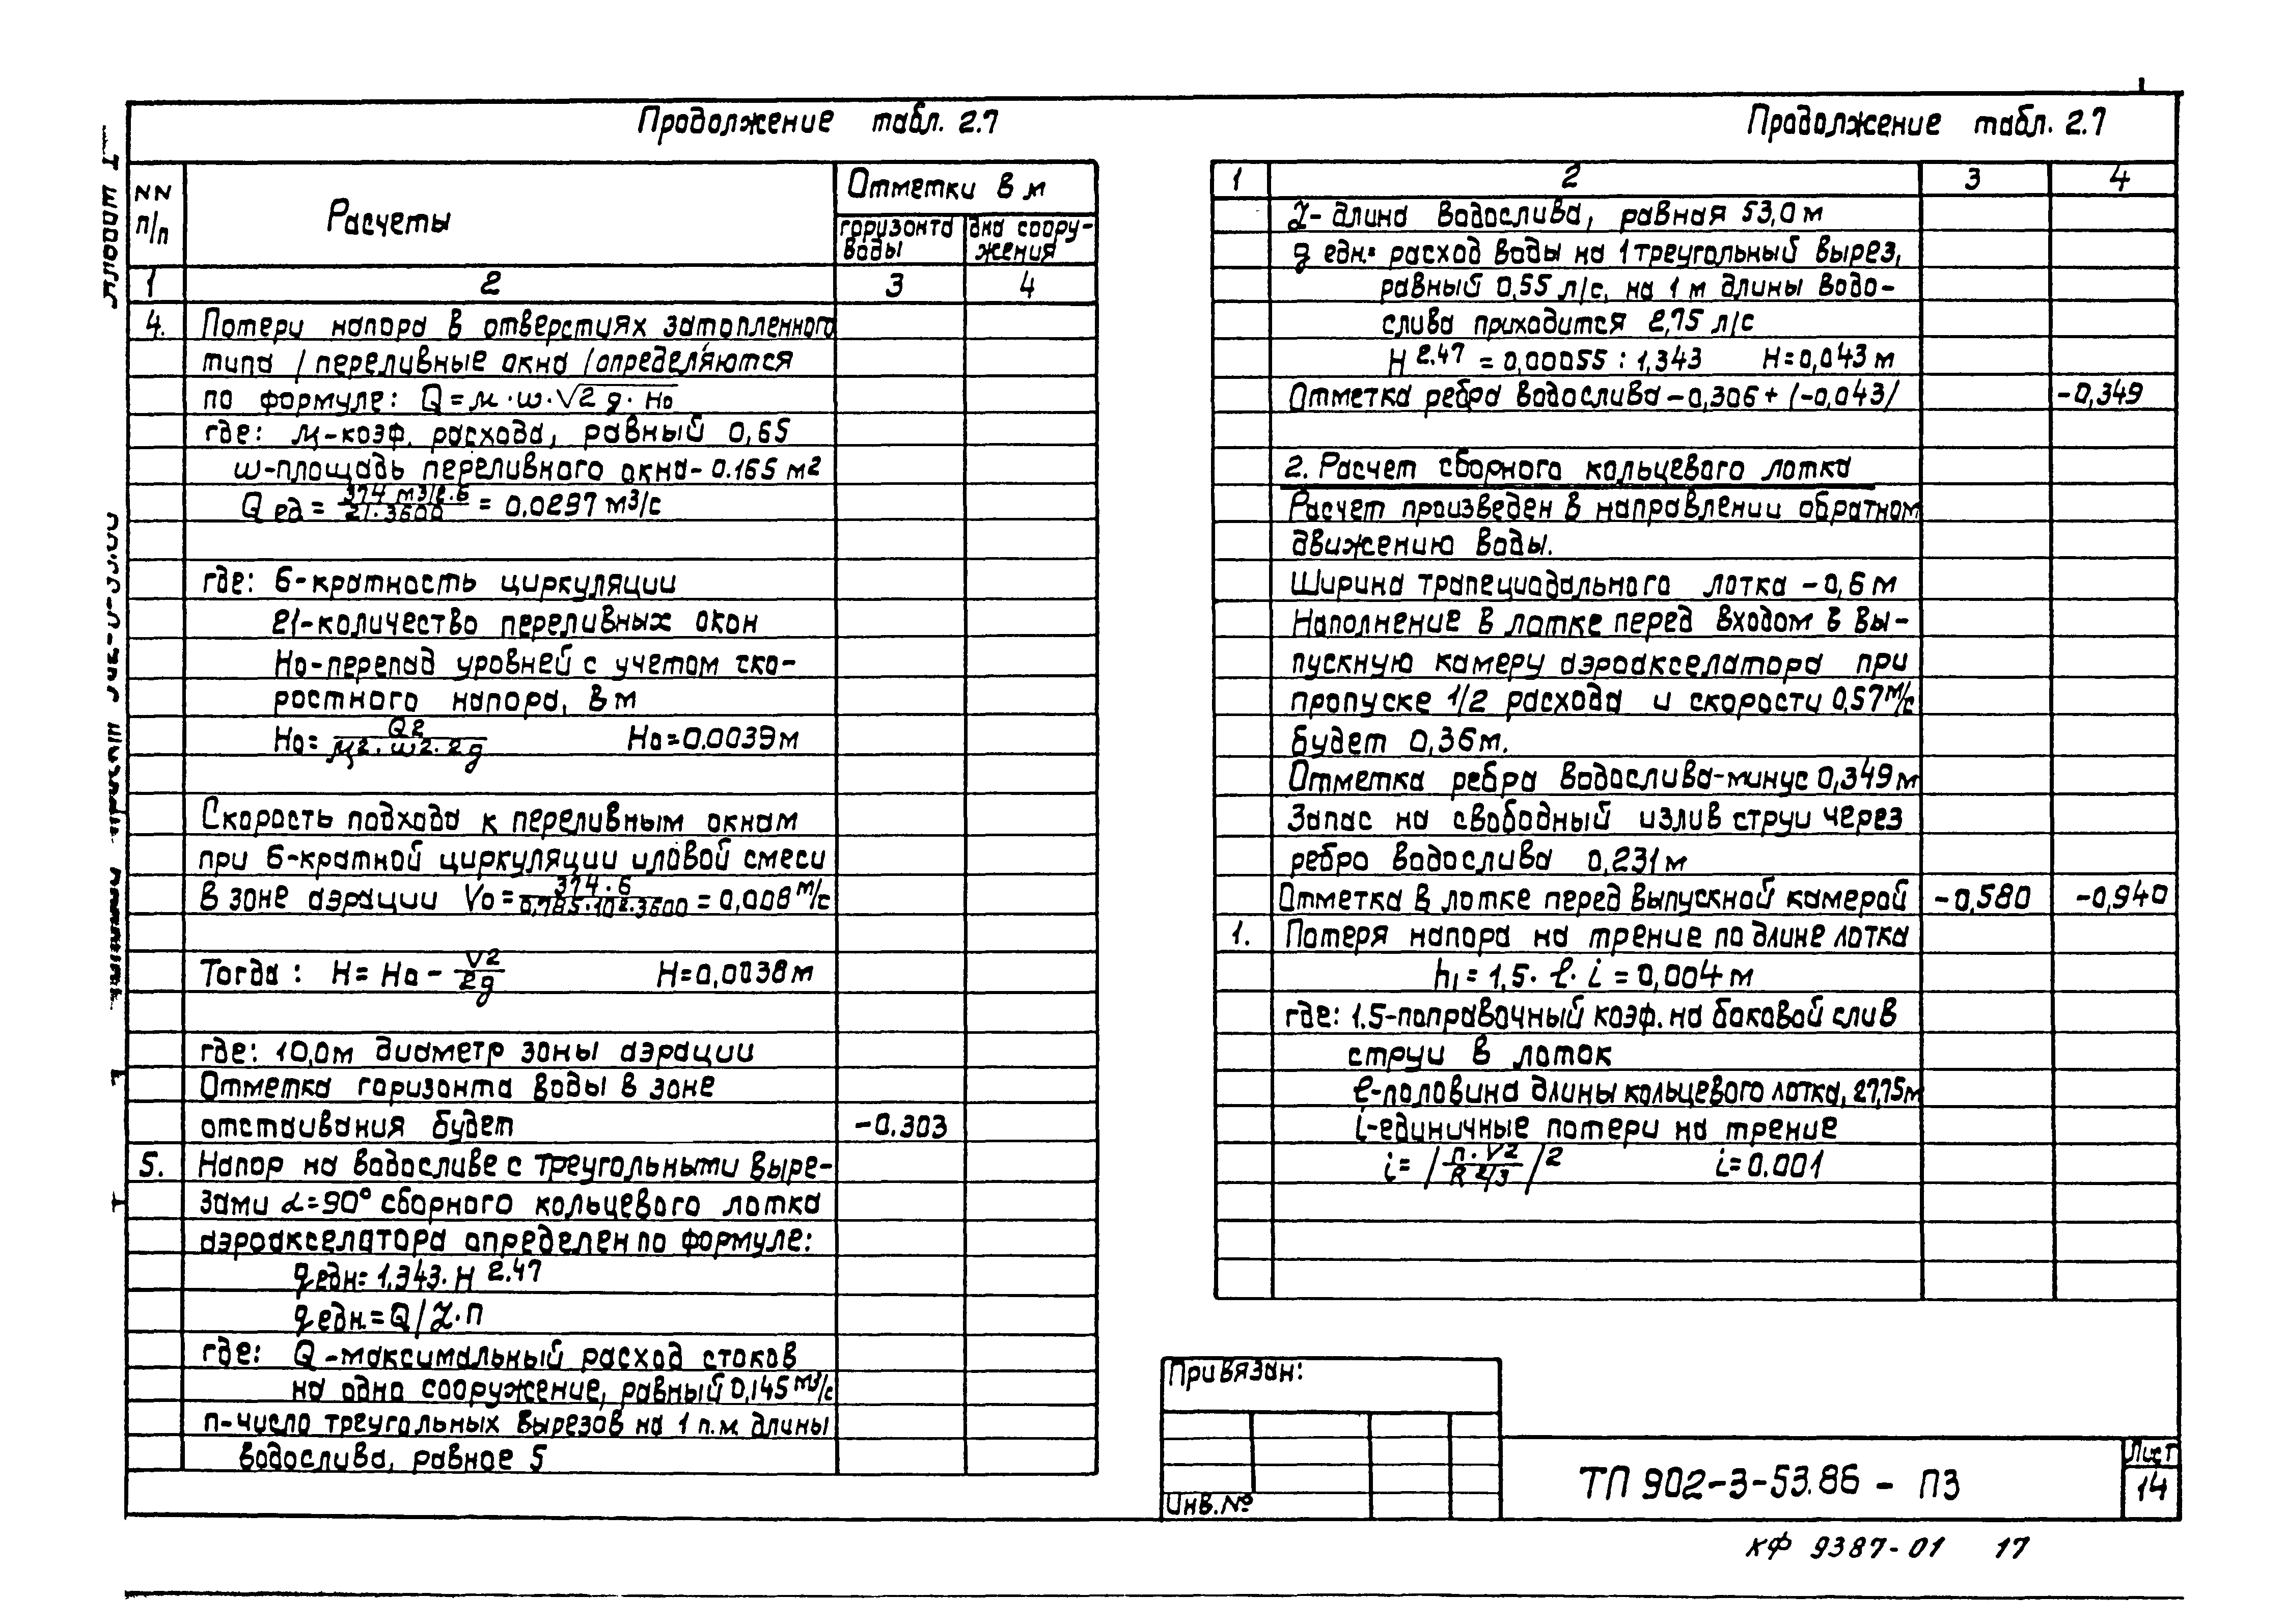 Продолжение табл. 2.7
NN п/п Расчеты Отметки в м
горизонта воды дна сооружения
1 2 3 4
4. Потери напора в отверстиях затопленного
типа / переливные окна / определяются
по формуле: Q = μ · ω · √2 g · Но
где: μ - коэф. расхода, равный 0,65
ω - площадь переливного окна - 0.165 м2
Q ед = 374 м3/г. 6 / 21 · 3600 = 0,0297 м3/с
где: 6 - кратность циркуляции
21 - количество переливных окон
Но - перепад уровней с учетом ско-
ростного напора, в м
Но = Q2 / μ2 · ω2 · 2g Но = 0.0039 м
Скорость подхода к переливным окнам
при 6-кратной циркуляции иловой смеси
в зоне аэрации Vо = 374 · 6 / 0,785 · 10 2 · 3600 = 0,008 м/с
Тогда: Н = Но - V2 / 2g Н = 0,0038 м
где: 10,0 м диаметр зоны аэрации
Отметка горизонта воды в зоне
отстаивания будет -0.303
5. Напор на водосливе с треугольными выре-
зами α = 90° сборного кольцевого лотка
аэроакселатора определен по формуле:
q едн = 1,343 · Н 2.47
q едн. = Q / L · П
где: Q - максимальный расход стоков
на одно сооружение, равный 0,145 м3/с
п - число треугольных вырезов на 1 п.м. длины
водослива, равное 5
Продолжение табл. 2.7
1 2 3 4
L - длина водослива, равная 53,0 м
q едн. - расход воды на 1 треугольный вырез,
равный 0,55 л/с, на 1 м длины водо-
слива приходится 2,75 л/с
Н 2.47 = 0,00055 : 1,343 Н = 0,043 м
Отметка ребра водослива - 0,306 + /-0,043/ -0,349
2. Расчет сборного кольцевого лотка
Расчет произведен в направлении обратном
движению воды.
Ширина трапециадального лотка - 0,6 м
Наполнение в лотке перед входом в вы-
пускную камеру аэроакселатора при
пропуске 1/2 расхода и скорости 0,57 м/с
будет 0,36 м.
Отметка ребра водослива - минус 0,349 м
Запас на свободный излив струи через
ребро водослива 0,231 м
Отметка в лотке перед выпускной камерой -0,580 -0,940
1. Потеря напора на трение по длине лотка
h1 = 1,5 · ℓ · i = 0,004 м
где: 1.5 - поправочный коэф. на боковой слив
струи в лоток
ℓ - половина длины кольцевого лотка, 27,75 м
i - единичные потери на трение
i = / п · V2 / R 2/3 / 2 i = 0.001
Привязан:
Инв. №
ТП 902-3-53.86 - ПЗ
Лист
14
КФ 9387-01 17